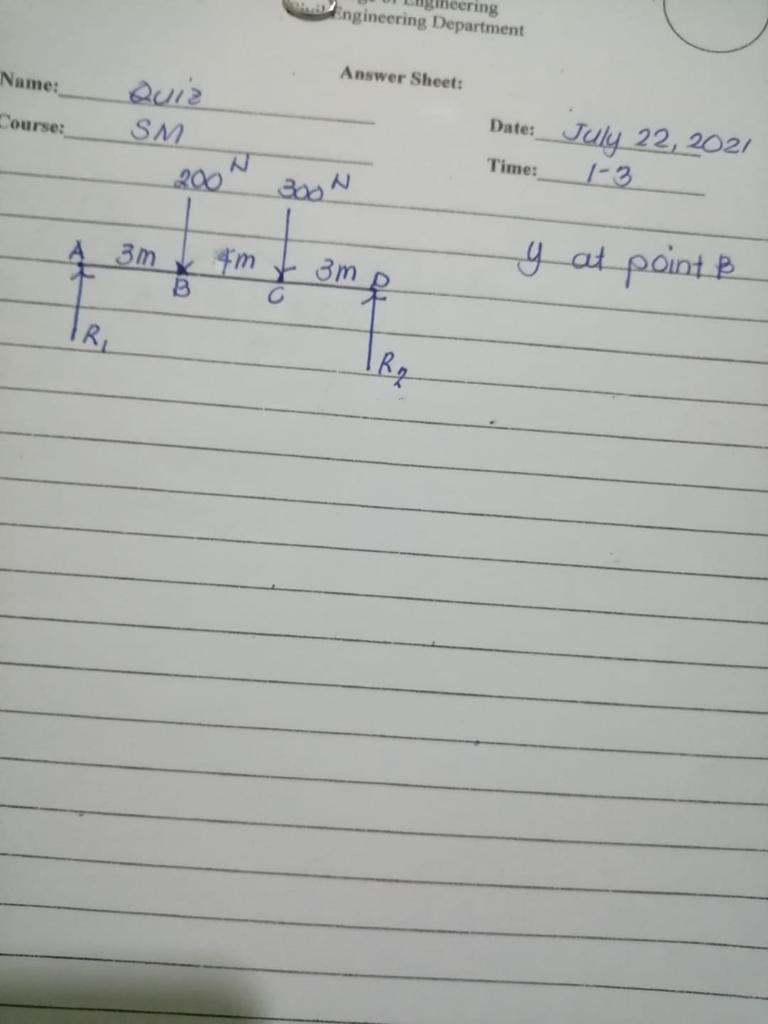 Engineering
Civil Engineering Department
Answer Sheet:
Name: Quiz
Course: SM
Date: July 22, 2021
Time: 1-3
200 N 300 N
A 3m B 4m C 3m D
R1 R2
y at point B